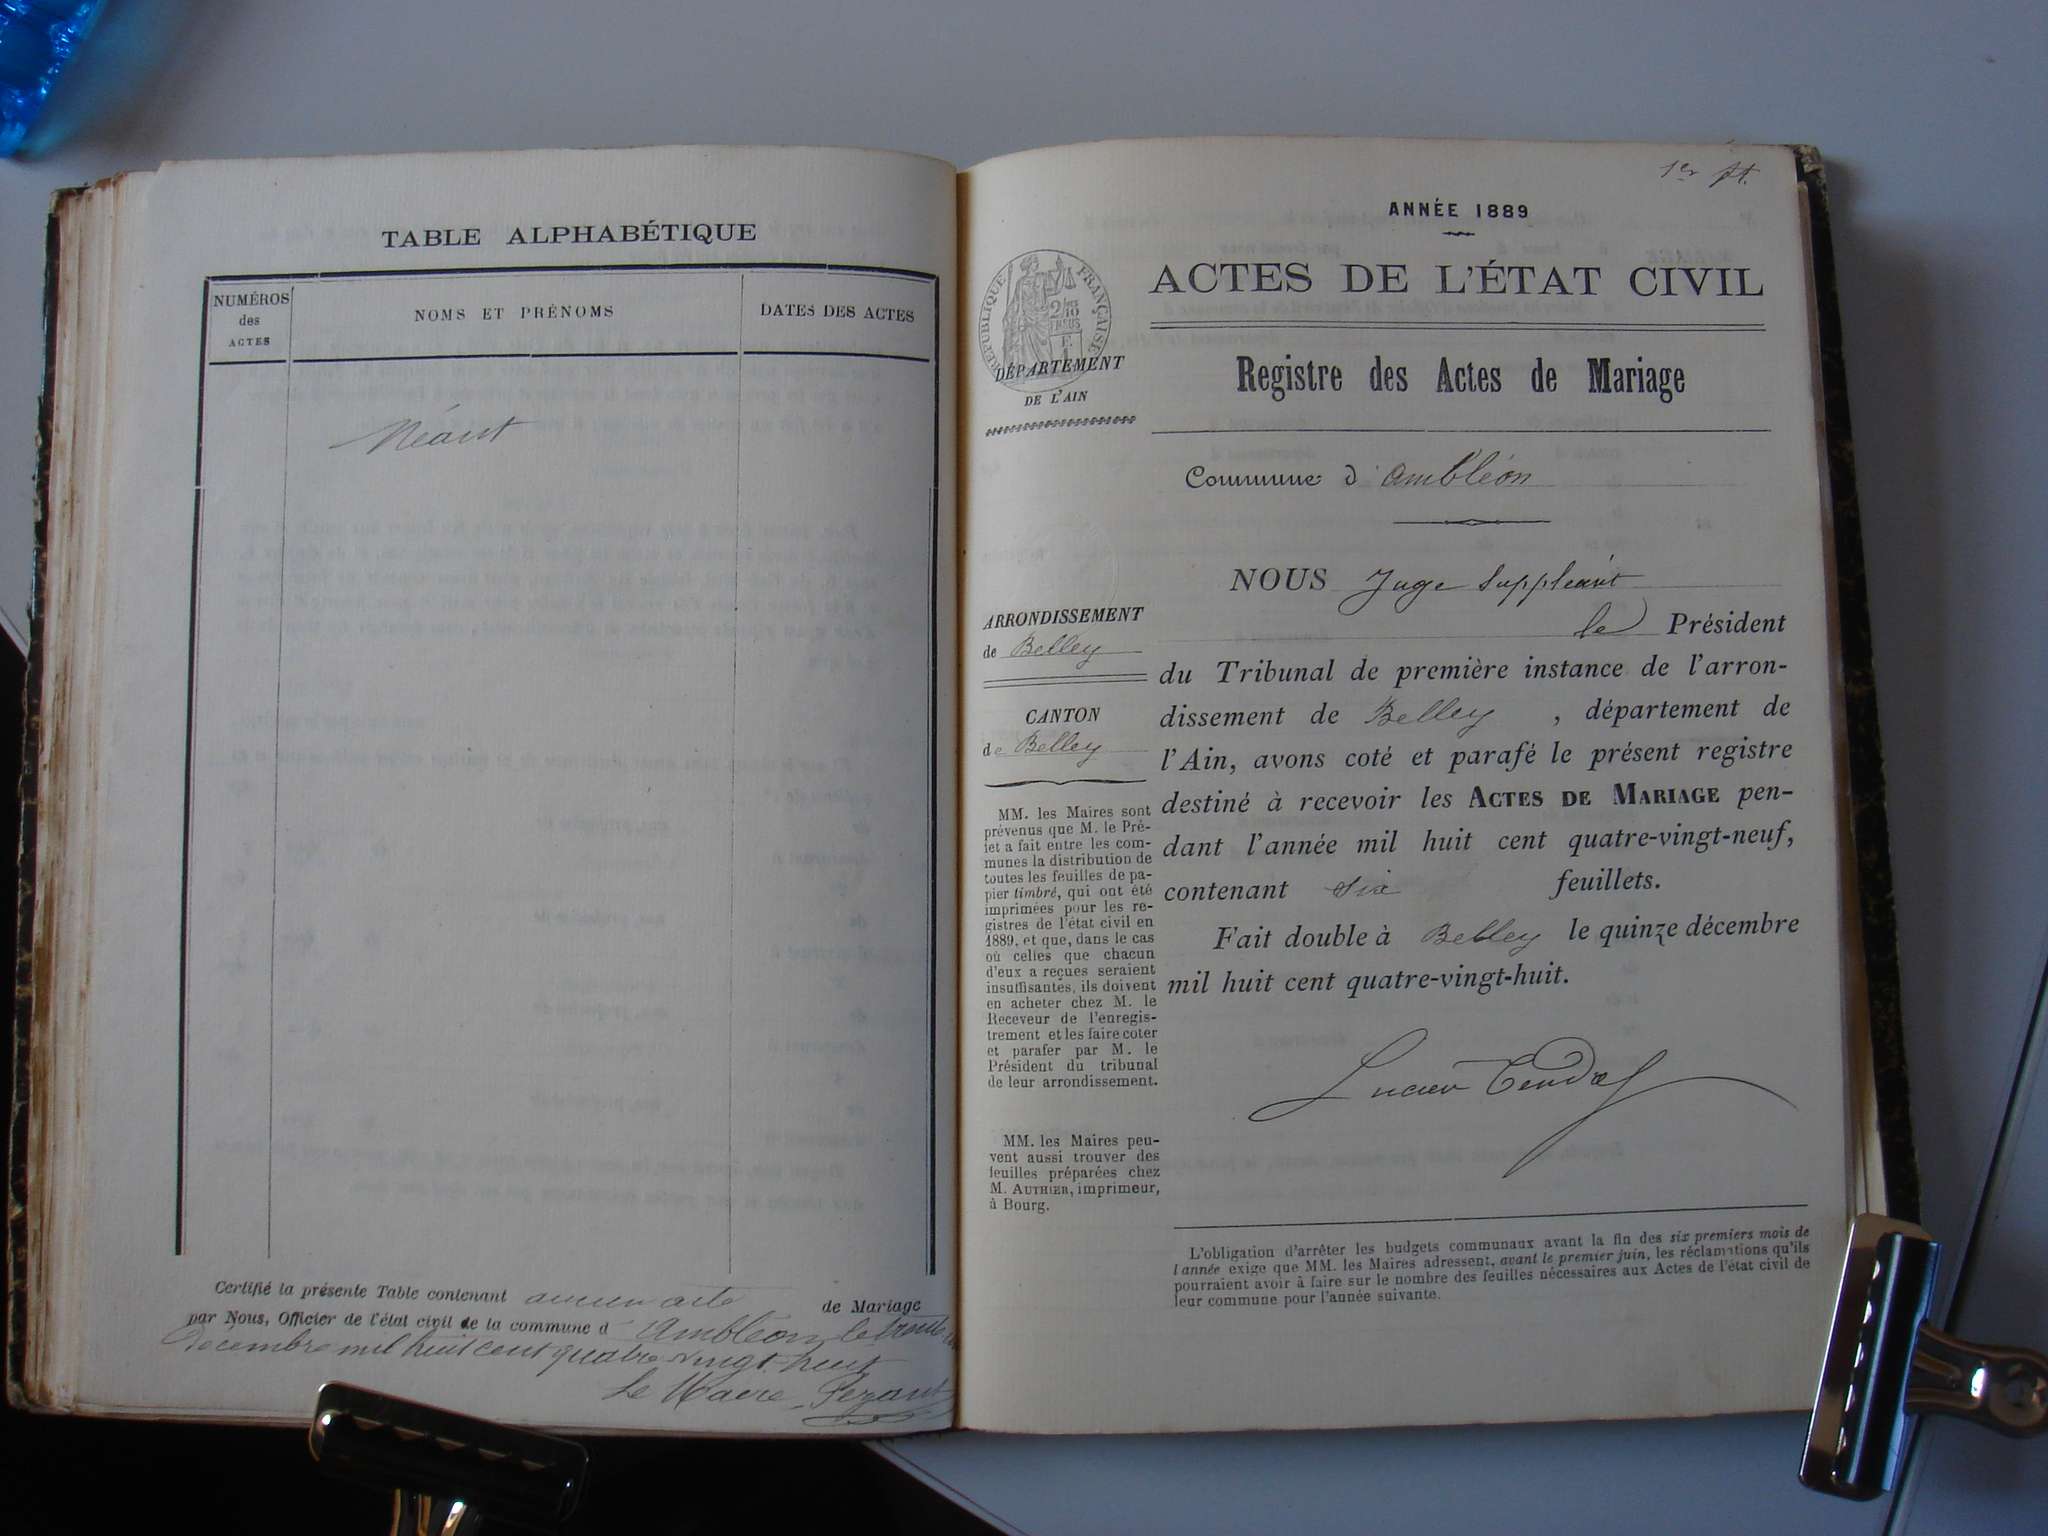 TABLE ALPHABÉTIQUE
NUMÉROS
des
ACTES
NOMS ET PRÉNOMS
DATES DES ACTES
Néant
Certifié la présente Table contenant aucun acte de Mariage
par Nous, Officier de l'état civil de la commune d Ambléon, le trente un
decembre mil huit cent quatre vingt-huit
Le Maire
1er ft.
ANNÉE 1889
RÉPUBLIQUE FRANÇAISE
DÉPARTEMENT
DE L'AIN
ACTES DE L'ÉTAT CIVIL
Registre des Actes de Mariage
Commune d' Ambléon
ARRONDISSEMENT
de Belley
CANTON
de Belley
MM. les Maires sont
prévenus que M. le Pré-
fet a fait entre les com-
munes la distribution de
toutes les feuilles de pa-
pier timbré, qui ont été
imprimées pour les re-
gistres de l'état civil en
1889, et que, dans le cas
où celles que chacun
d'eux a reçues seraient
insuffisantes, ils doivent
en acheter chez M. le
Receveur de l'enregis-
trement et les faire coter
et parafer par M. le
Président du tribunal
de leur arrondissement.
MM. les Maires peu-
vent aussi trouver des
feuilles préparées chez
M. AUTHIER, imprimeur,
à Bourg.
NOUS Juge Suppléant
le Président
du Tribunal de première instance de l'arron-
dissement de Belley , département de
l'Ain, avons coté et parafé le présent registre
destiné à recevoir les ACTES DE MARIAGE pen-
dant l'année mil huit cent quatre-vingt-neuf,
contenant six feuillets.
Fait double à Belley le quinze décembre
mil huit cent quatre-vingt-huit.
Lucien
L'obligation d'arrêter les budgets communaux avant la fin des six premiers mois de
l'année exige que MM. les Maires adressent, avant le premier juin, les réclamations qu'ils
pourraient avoir à faire sur le nombre des feuilles nécessaires aux Actes de l'état civil de
leur commune pour l'année suivante.